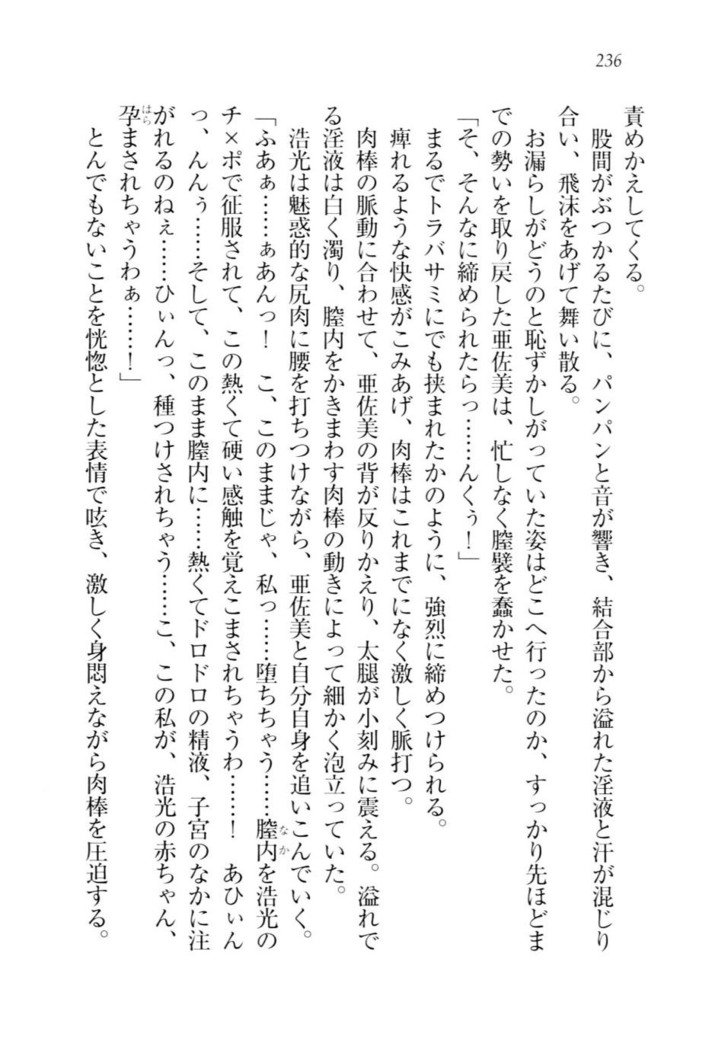 236
責めかえしてくる。
股間がぶつかるたびに、パンパンと音が響き、結合部から溢れた淫液と汗が混じり
合い、飛沫をあげて舞い散る。
お漏らしがどうのと恥ずかしがっていた姿はどこへ行ったのか、すっかり先ほどま
での勢いを取り戻した亜佐美は、忙しなく膣襞を蠢かせた。
「そ、そんなに締められたらっ……んくぅ！」
まるでトラバサミにでも挟まれたかのように、強烈に締めつけられる。
痺れるような快感がこみあげ、肉棒はこれまでになく激しく脈打つ。
肉棒の脈動に合わせて、亜佐美の背が反りかえり、太腿が小刻みに震える。溢れで
る淫液は白く濁り、膣内をかきまわす肉棒の動きによって細かく泡立っていた。
浩光は魅惑的な尻肉に腰を打ちつけながら、亜佐美と自分自身を追いこんでいく。
「ふあぁ……ぁあんっ！　こ、このままじゃ、私っ……堕ちちゃう……膣内（なか）を浩光の
チ×ポで征服されて、この熱くて硬い感触を覚えこまされちゃうわ……！　あひぃん
っ、んんぅ……そして、このまま膣内に……熱くてドロドロの精液、子宮のなかに注
がれるのねぇ……ひぃんっ、種つけされちゃう……こ、この私が、浩光の赤ちゃん、
孕（はら）まされちゃうわぁ……！」
とんでもないことを恍惚とした表情で呟き、激しく身悶えながら肉棒を圧迫する。